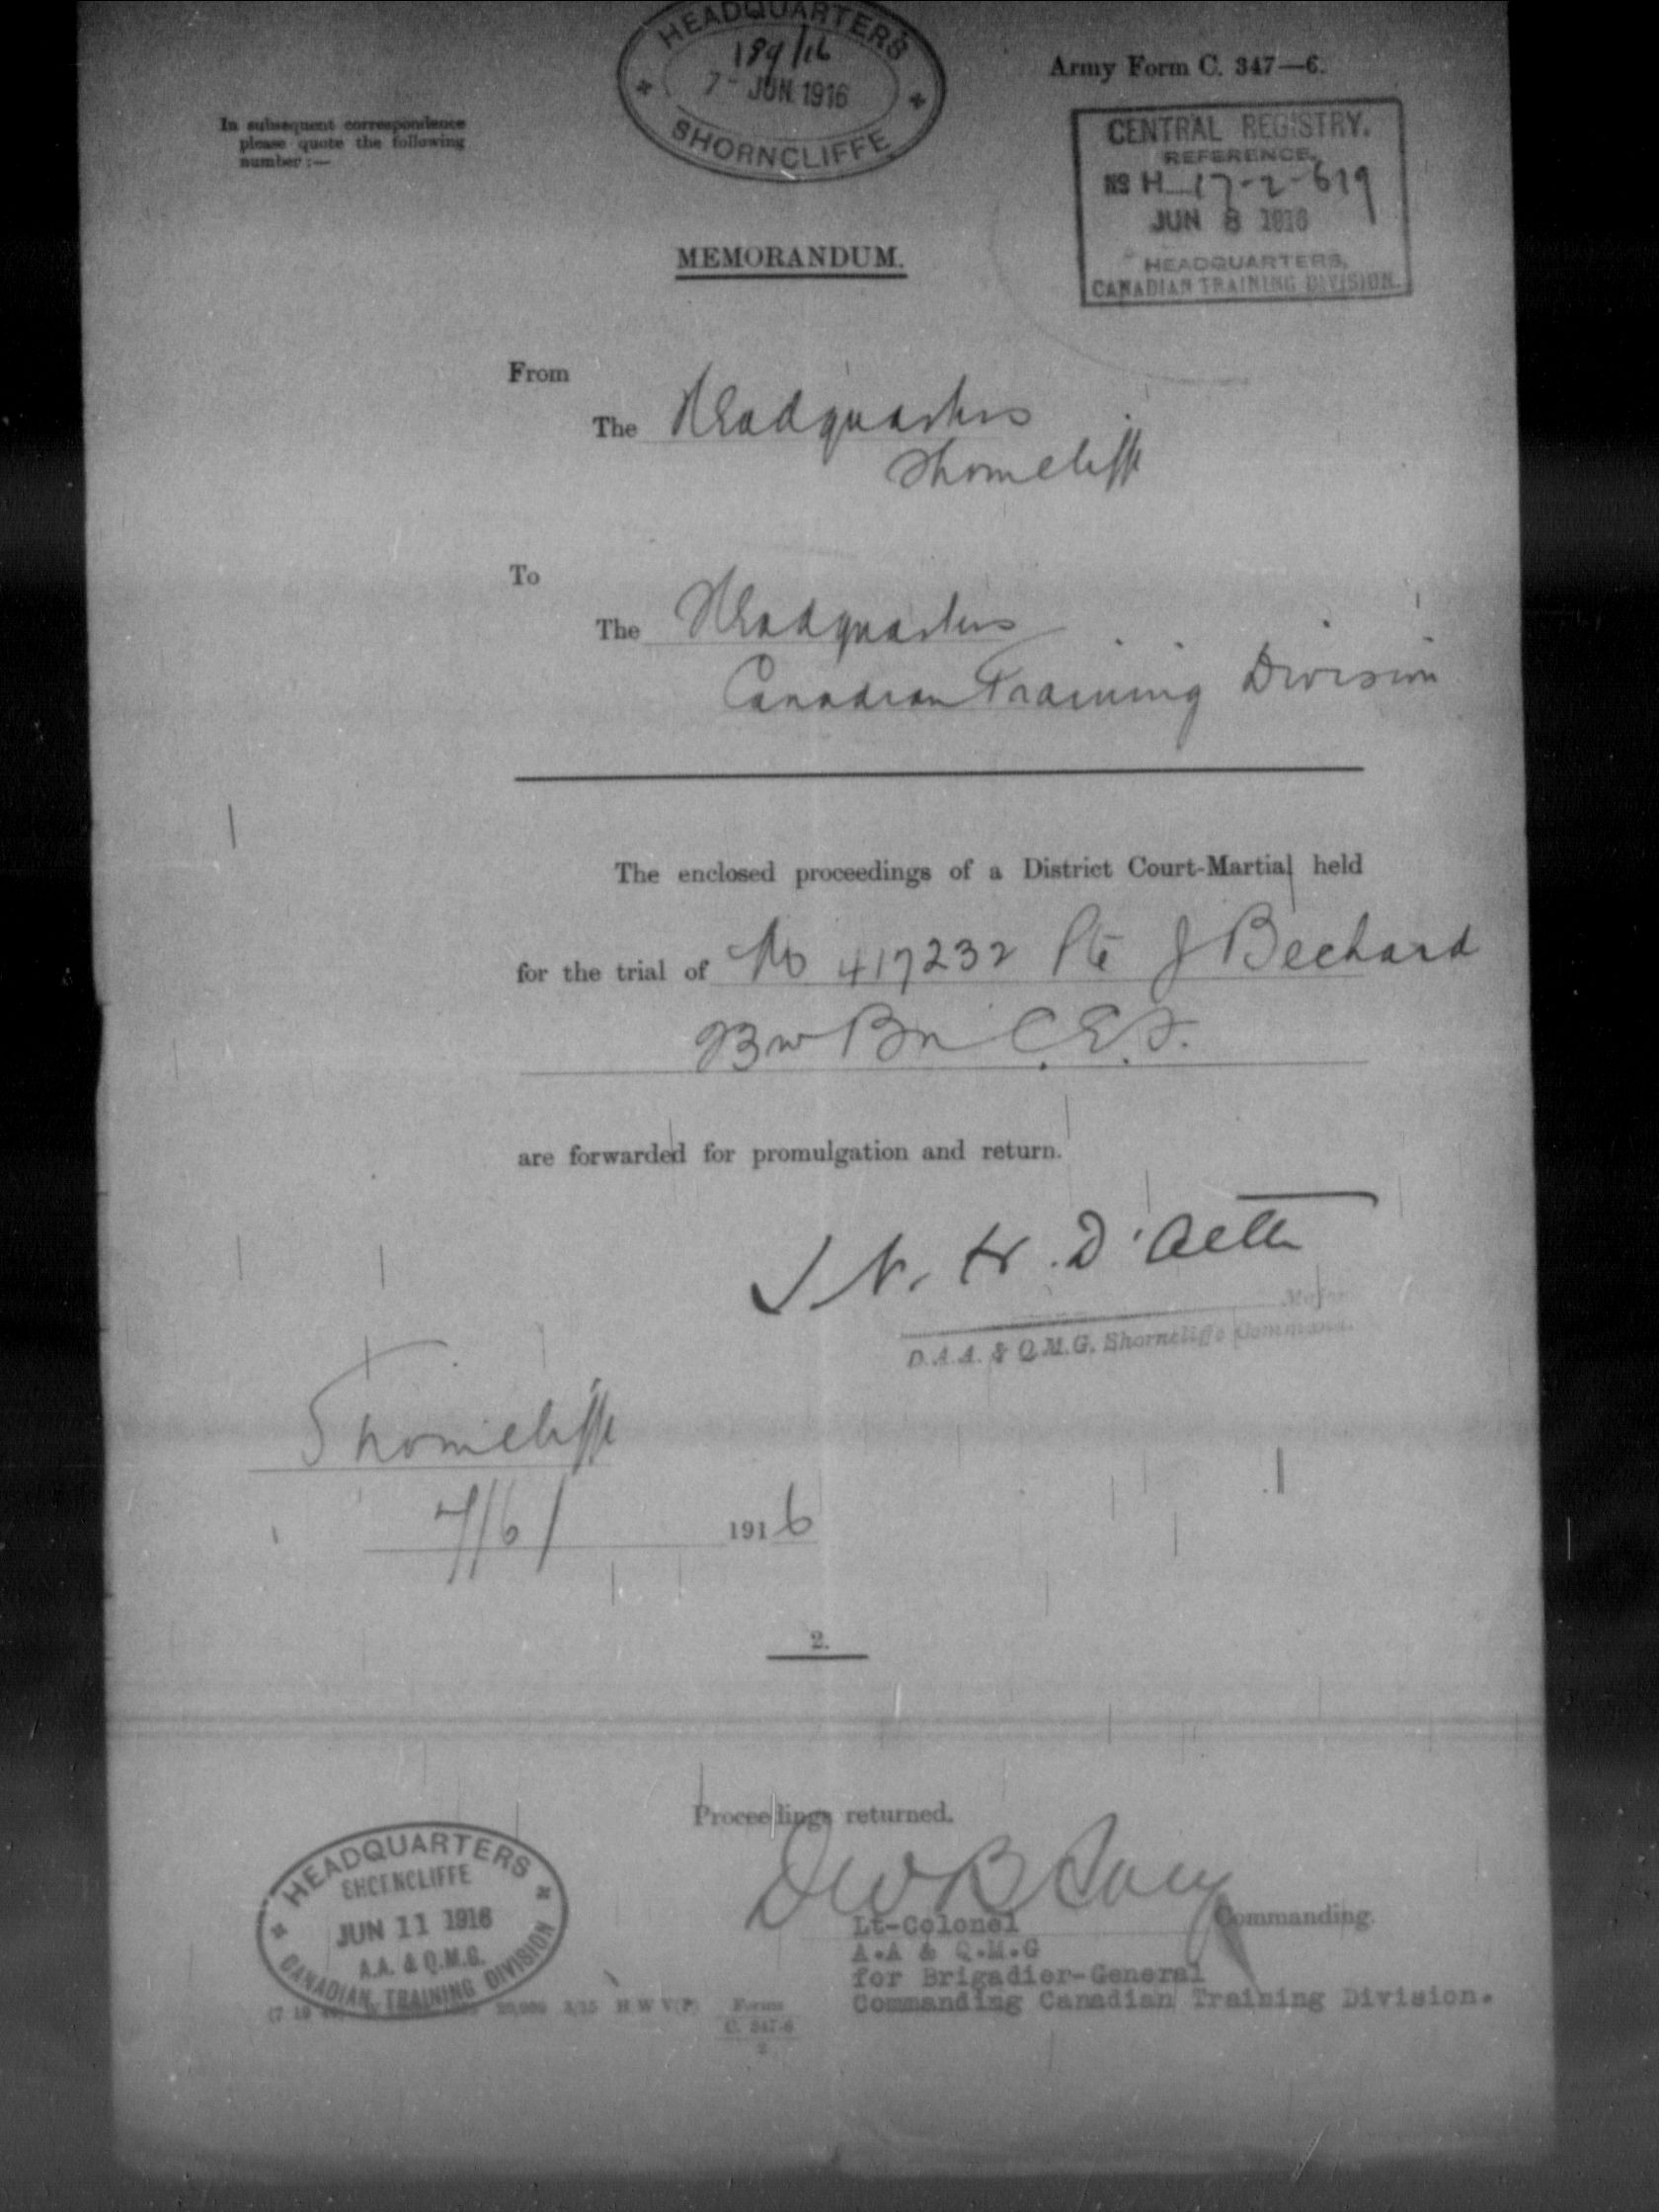 HEADQUARTERS
189/16
7 - JUN. 1916
SHORNCLIFFE
Army Form C. 347—6.
In subsequent correspondence
please quote the following
number :—
CENTRAL REGISTRY.
REFERENCE.
No H 17-2-619
JUN 8 1916
HEADQUARTERS,
CANADIAN TRAINING DIVISION.
MEMORANDUM.
From
The Headquarters
Shorncliffe
To
The Headquarters
Canadian Training Division
The enclosed proceedings of a District Court-Martial held
for the trial of No 417232 Pte J Bechard
Bn C.E.F.
are forwarded for promulgation and return.
D'Aeth
Major
D.A.A. & Q.M.G. Shorncliffe Command.
Shorncliffe
7/6/ 1916
2.
Proceedings returned.
HEADQUARTERS
SHORNCLIFFE
JUN 11 1916
A.A. & Q.M.G.
CANADIAN TRAINING DIVISION
Commanding.
Lt-Colonel
A.A & Q.M.G
for Brigadier-General
Commanding Canadian Training Division.
3/15 H W V(P) Forms
C. 347-6
2